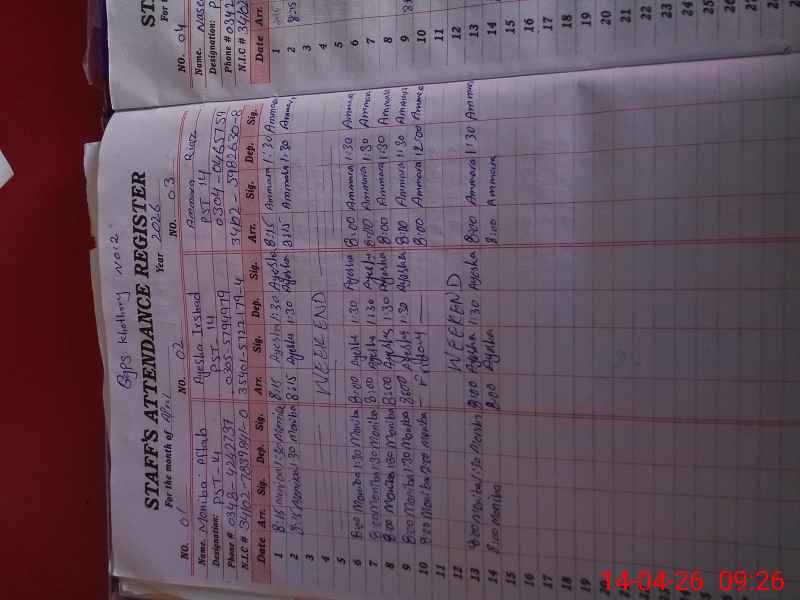 GGPS Khothay No:2
STAFF'S ATTENDANCE REGISTER
For the month of April Year 2026
NO. 01 NO. 02 NO. 03
Name. Moniba Aftab Ayesha Irshad Ammara Riaz
Designation: PST-14 PST-14 PST 14
Phone # 0348-4242737 0305-5794979 0304-0465757
N.I.C # 35401-5722179-4 34102-5982630-8
Date Arr. Sig. Dep. Sig. Arr. Sig. Dep. Sig. Arr. Sig. Dep. Sig.
1 8:15 Moniba 1:30 Moniba 8:15 Ayesha 1:30 Ayesha 8:15 Ammara 1:30 Ammara
2 8:15 Moniba 1:30 Moniba 8:15 Ayesha 1:30 Ayesha 8:15 Ammara 1:30 Ammara
3
4 WEEKEND
5
6 8:00 Moniba 1:30 Moniba 8:00 Ayesha 1:30 Ayesha 8:00 Ammara 1:30 Ammara
7 8:00 Moniba 1:30 Moniba 8:00 Ayesha 1:30 Ayesha 8:00 Ammara 1:30 Ammara
8 8:00 Moniba 1:30 Moniba 8:00 Ayesha 1:30 Ayesha 8:00 Ammara 1:30 Ammara
9 8:00 Moniba 1:30 Moniba 8:00 Ayesha 1:30 Ayesha 8:00 Ammara 1:30 Ammara
10 8:00 Moniba 12:00 Moniba 8:00 Ammara 12:00 Ammara
11
12 WEEKEND
13 8:00 Moniba 1:30 Moniba 8:00 Ayesha 1:30 Ayesha 8:00 Ammara 1:30 Ammara
14 8:00 Moniba 8:00 Ayesha 8:00 Ammara
15
16
17
18
19
20
NO. 04
Name.
Designation:
Phone # 0342
N.I.C # 3410
Date Arr.
1
2 8:15
3
4
5
6
7
8
9
10
11
12
13
14
15
16
17
18
19
20
21
22
23
24
25
26
27
14-04-26 09:26